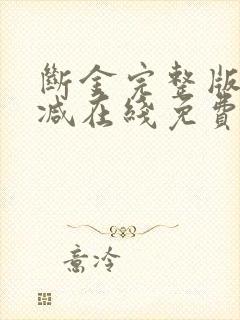 斷金完整版
減在綫免費
意冷